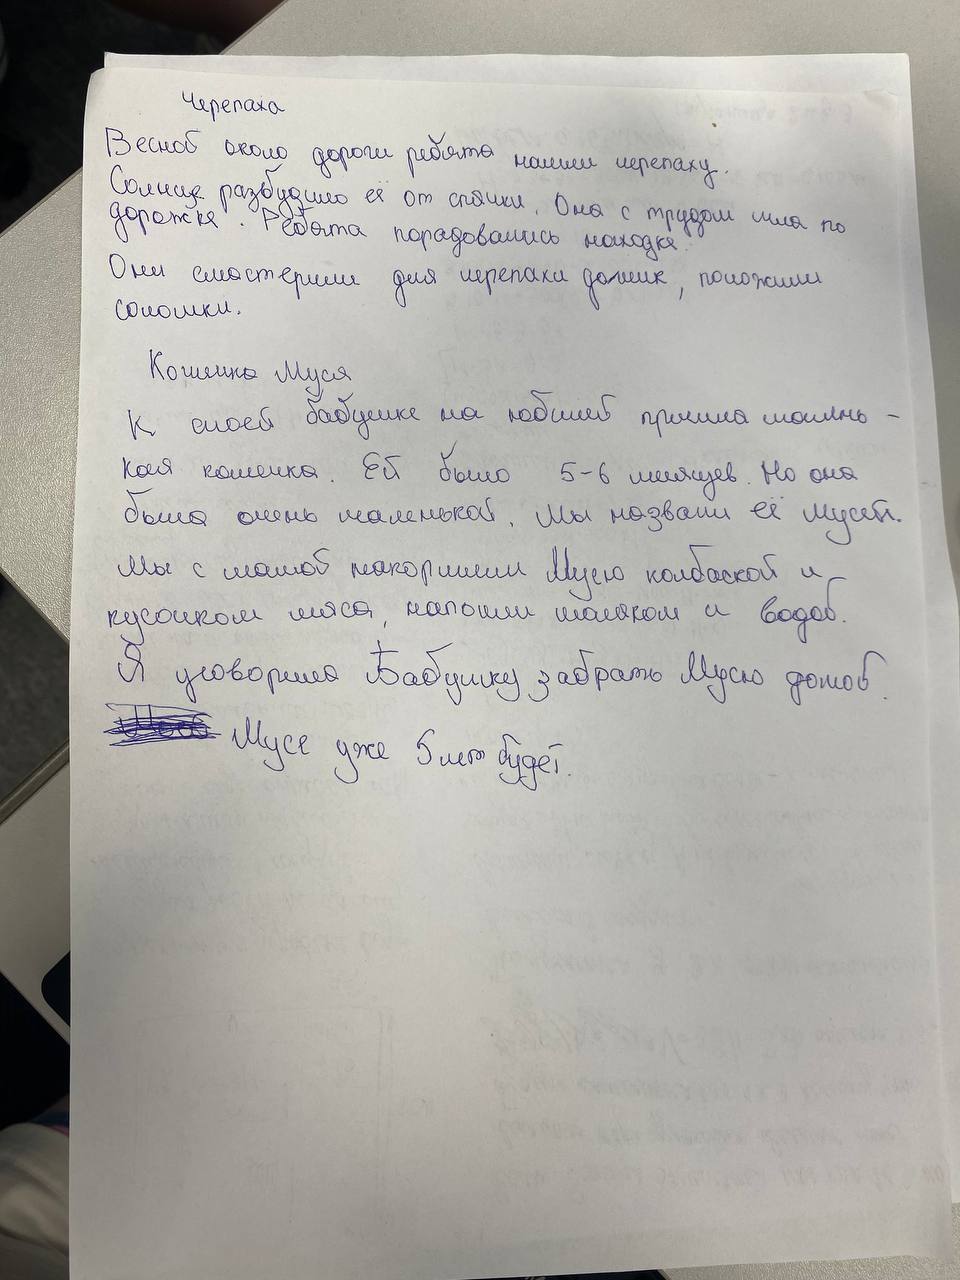 Черепаха
Весной около дороги ребята нашли черепаху.
Солнце разбудило её от спячки. Она с трудом шла по
дорожке. Ребята порадовались находке.
Они смастерили для черепахи домик, положили
соломки.
Кошечка Муся
К моей бабушке на юбилей пришла малень-
кая кошечка. Ей было 5-6 месяцев. Но она
была очень маленькой. Мы назвали её Мусей.
Мы с мамой накормили Мусю колбаской и
кусочком мяса, напоили молоком и водой.
Я уговорила Бабушку забрать Мусю домой.
Мусе уже 5 лет будет.